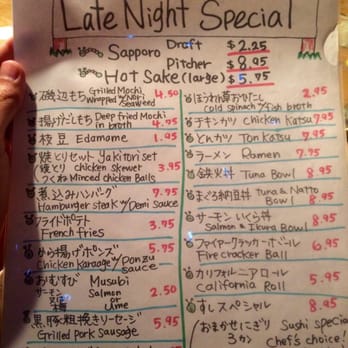 Late Night Special
Sapporo Draft $2.25
Pitcher $8.95
Hot Sake (large) $5.75
磯辺もち Grilled Mochi wrapped w/Nori Seaweed 4.50
揚げだしもち Deep fried Mochi in broth 4.75
枝豆 Edamame 1.95
焼とりセット Yakitori set
(焼とり chicken skewer 3.95
つくね Minced chicken Balls
煮込みハンバーグ 7.75
Hamburger steak w/Demi sauce
フライドポテト 3.95
French fries
から揚げポンズ 5.75
Chicken Karaage w/Ponzu sauce
おむすび Musubi
サーモン Salmon 2.50
又は or
梅 Ume
黒豚粗挽きソーセージ 5.95
Grilled Pork Sausage
ほうれん草おひたし 2.95
cold spinach w/Fish broth
チキンカツ chicken Katsu 7.95
とんカツ Ton Katsu 7.95
ラーメン Ramen 7.95
鉄火丼 Tuna Bowl 8.95
まぐろ納豆丼 Tuna & Natto Bowl 8.95
サーモンいくら丼 8.95
Salmon & Ikura Bowl
ファイヤークラッカーボール 6.95
Fire cracker Ball
カリフォルニアロール 5.95
California Roll
すしスペシャル 8.95
(おまかせにぎり Sushi special
3カン Chef's choice!